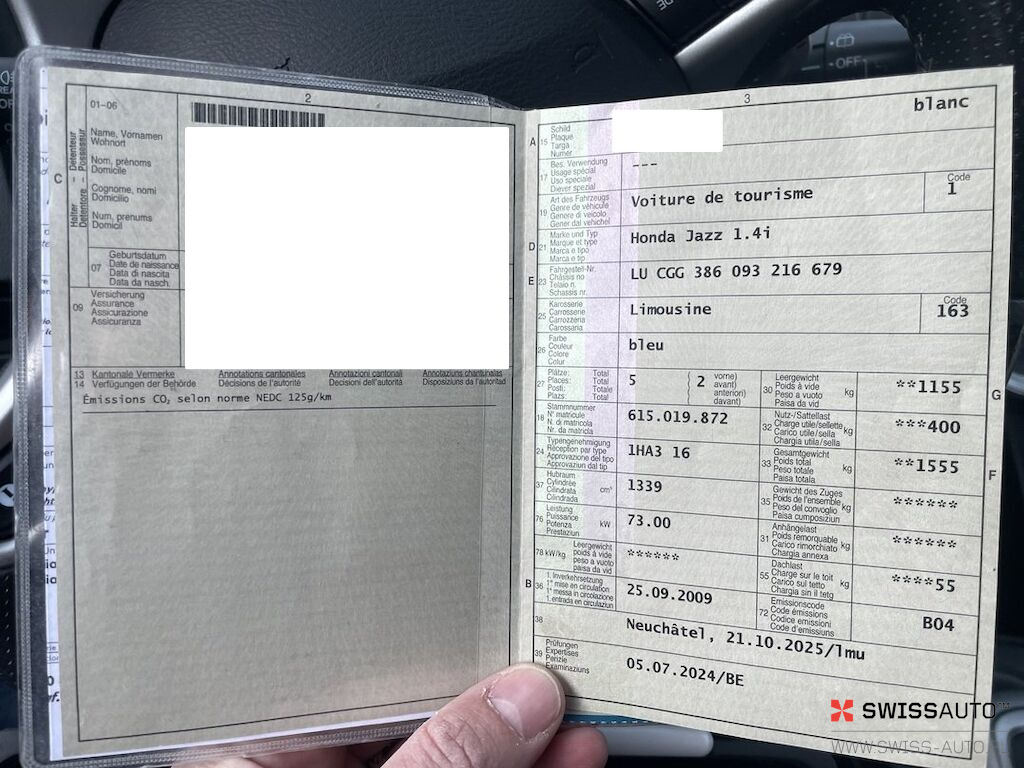 OFF
2
01–06
Halter – Détenteur
Detentore – Possessur
C
Name, Vornamen
Wohnort
Nom, prénoms
Domicile
Cognome, nomi
Domicilio
Num, prenums
Domicil
07
Geburtsdatum
Date de naissance
Data di nascita
Data da nasch.
09
Versicherung
Assurance
Assicurazione
Assicuranza
13 Kantonale Vermerke Annotations cantonales Annotazioni cantonali Annotaziuns chantunalas
14 Verfügungen der Behörde Décisions de l'autorité Decisioni dell'autorità Disposiziuns da l'autoritad
Émissions CO₂ selon norme NEDC 125g/km
3
blanc
A 15
Schild
Plaque
Targa
Numer
17
Bes. Verwendung
Usage spécial
Uso speciale
Diever spezial
---
19
Art des Fahrzeugs
Genre de véhicule
Genere di veicolo
Gener dal vehichel
Voiture de tourisme
Code
1
D 21
Marke und Typ
Marque et type
Marca e tipo
Marca e tip
Honda Jazz 1.4i
E 23
Fahrgestell-Nr.
Châssis no
Telaio n.
Schassis nr.
LU CGG 386 093 216 679
25
Karosserie
Carrosserie
Carrozzeria
Carossaria
Limousine
Code
163
26
Farbe
Couleur
Colore
Colur
bleu
27
Plätze: Total
Places: Total
Posti: Totale
Plazs: Total
5
2
vorne)
avant)
anteriori)
davant)
30
Leergewicht
Poids à vide
Peso a vuoto
Paisa da vid
kg
**1155
G
18
Stammnummer
N° matricule
N. di matricola
Nr. da matricla
615.019.872
32
Nutz-/Sattellast
Charge utile/sellette
Carico utile/sella
Chargia utila/sella
kg
***400
24
Typengenehmigung
Réception par type
Approvazione del tipo
Approvaziun dal tip
1HA3 16
33
Gesamtgewicht
Poids total
Peso totale
Paisa totala
kg
**1555
F
37
Hubraum
Cylindrée
Cilindrata
Cilindrada
cm³
1339
35
Gewicht des Zuges
Poids de l'ensemble
Peso del convoglio
Paisa cumposiziun
kg
******
76
Leistung
Puissance
Potenza
Prestaziun
kW
73.00
31
Anhängelast
Poids remorquable
Carico rimorchiato
Chargia annexa
kg
******
78 kW/kg
Leergewicht
poids à vide
peso a vuoto
paisa da vid
******
55
Dachlast
Charge sur le toit
Carico sul tetto
Chargia sin il tetg
kg
****55
B 36
1. Inverkehrsetzung
1re mise en circulation
1a messa in circolazione
1. entrada en circulaziun
25.09.2009
72
Emissionscode
Code émissions
Codice emissioni
Code d'emissiuns
B04
38
Neuchâtel, 21.10.2025/lmu
39
Prüfungen
Expertises
Perizie
Examinaziuns
05.07.2024/BE
SWISSAUTO™
WWW.SWISS-AUTO.